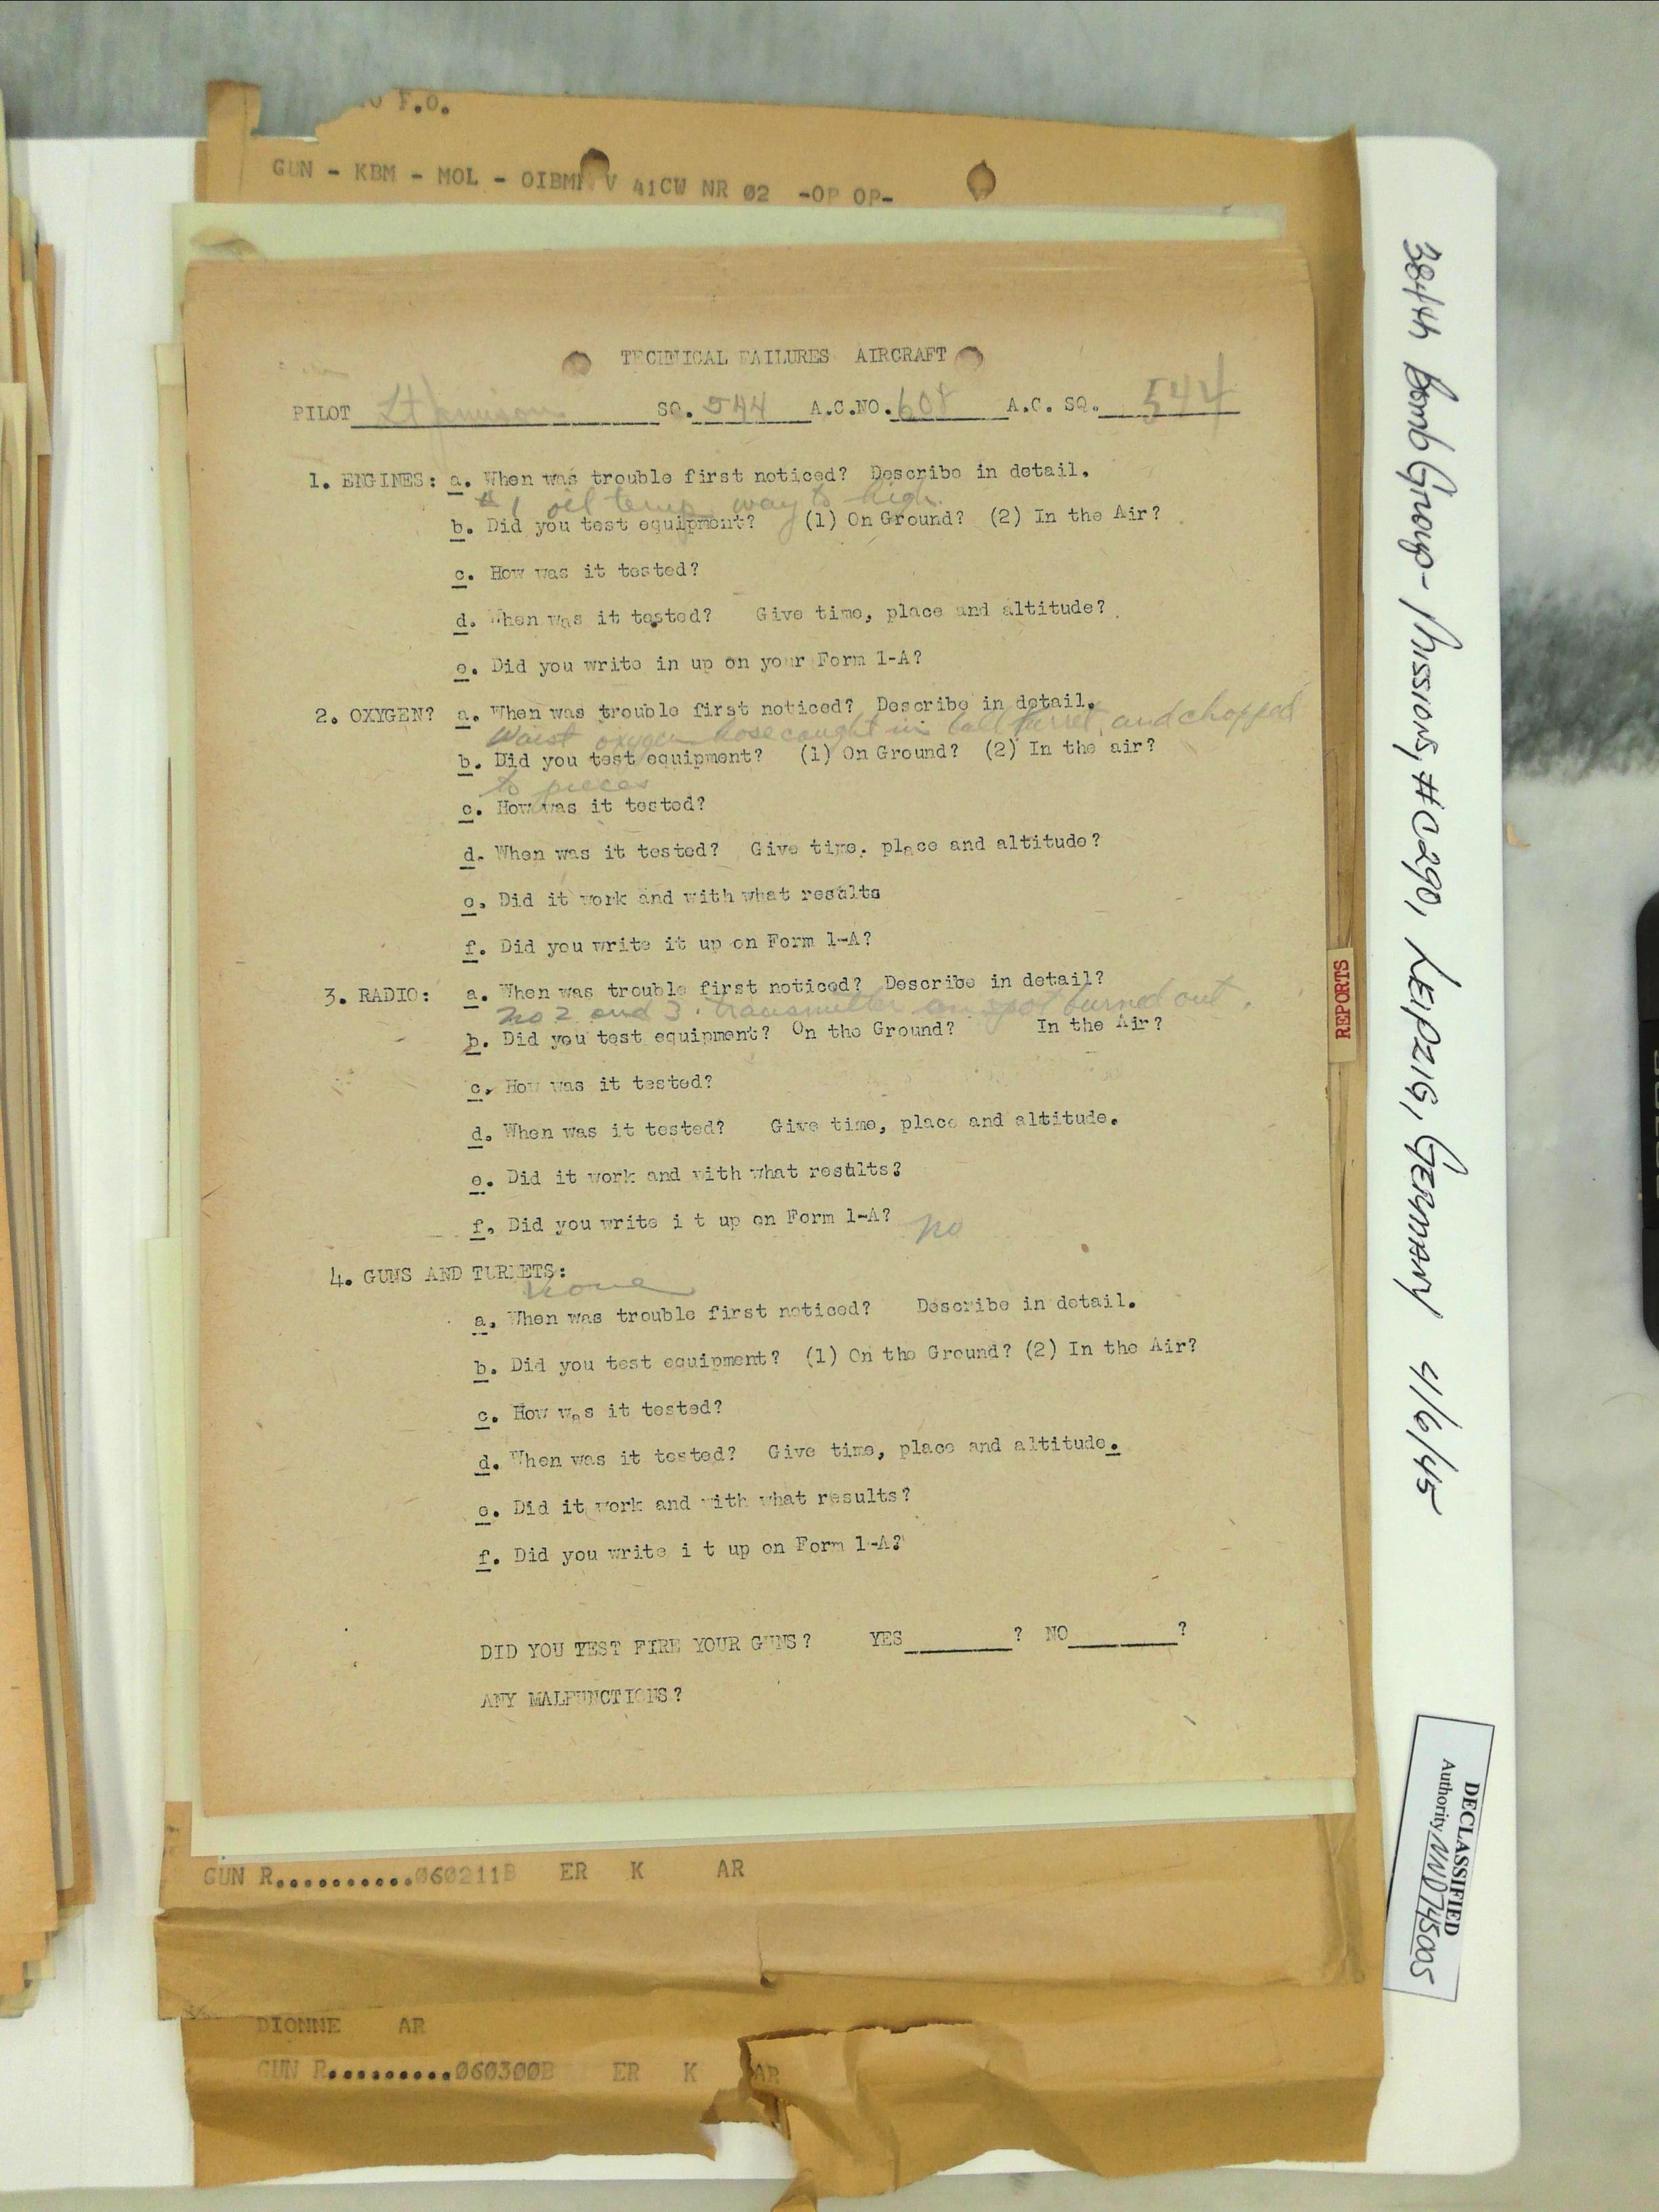 F.O.
GUN - KBM - MOL - OIBMN V 41CW NR 02 -OP OP-
TECHNICAL FAILURES AIRCRAFT
PILOT Lt Jamison SQ. 544 A.C.NO. 608 A.C. SQ. 544
1. ENGINES: a. When was trouble first noticed? Describe in detail.
#1 oil temp way to high.
b. Did you test equipment? (1) On Ground? (2) In the Air?
c. How was it tested?
d. When was it tested? Give time, place and altitude?
e. Did you write in up on your Form 1-A?
2. OXYGEN? a. When was trouble first noticed? Describe in detail.
Waist oxygen hose caught in ball turret, and chopped
b. Did you test equipment? (1) On Ground? (2) In the air?
to pieces
c. How was it tested?
d. When was it tested? Give time. place and altitude?
e. Did it work and with what results
f. Did you write it up on Form 1-A?
3. RADIO: a. When was trouble first noticed? Describe in detail?
no 2 and 3. transmitter on spot burned out.
b. Did you test equipment? On the Ground? In the Air?
c. How was it tested?
d. When was it tested? Give time, place and altitude.
e. Did it work and with what results?
f. Did you write i t up on Form 1-A? no
4. GUNS AND TURRETS:
none
a. When was trouble first noticed? Describe in detail.
b. Did you test equipment? (1) On the Ground? (2) In the Air?
c. How was it tested?
d. When was it tested? Give time, place and altitude.
e. Did it work and with what results?
f. Did you write i t up on Form 1-A?
DID YOU TEST FIRE YOUR GUNS? YES________? NO________?
ANY MALFUNCTIONS?
GUN R..........060211B ER K AR
DIONNE AR
GUN R.........060300B ER K AR
REPORTS
384th Bomb Group - Missions, #C290, LEIPZIG, GERMANY 4/6/45
DECLASSIFIED
Authority NND745005